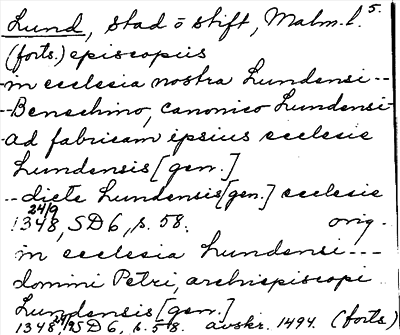 Lund, stad o stift, Malm. l. 5.
(forts.) episcopus
in ecclesia nostra Lundensi --
-- Benechino, canonico Lundensi -
-ad fabricam ipsius ecclesie
Lundensis [gen.]
-- dicte Lundensis [gen.] ecclesie
24/9
1348, SD 6, s. 58. orig.
in ecclesia Lundensi ---
domini Petri, archiepiscopi
Lundensis [gen.]
1348 24/9 SD 6, s. 58. avskr. 1494. (forts)